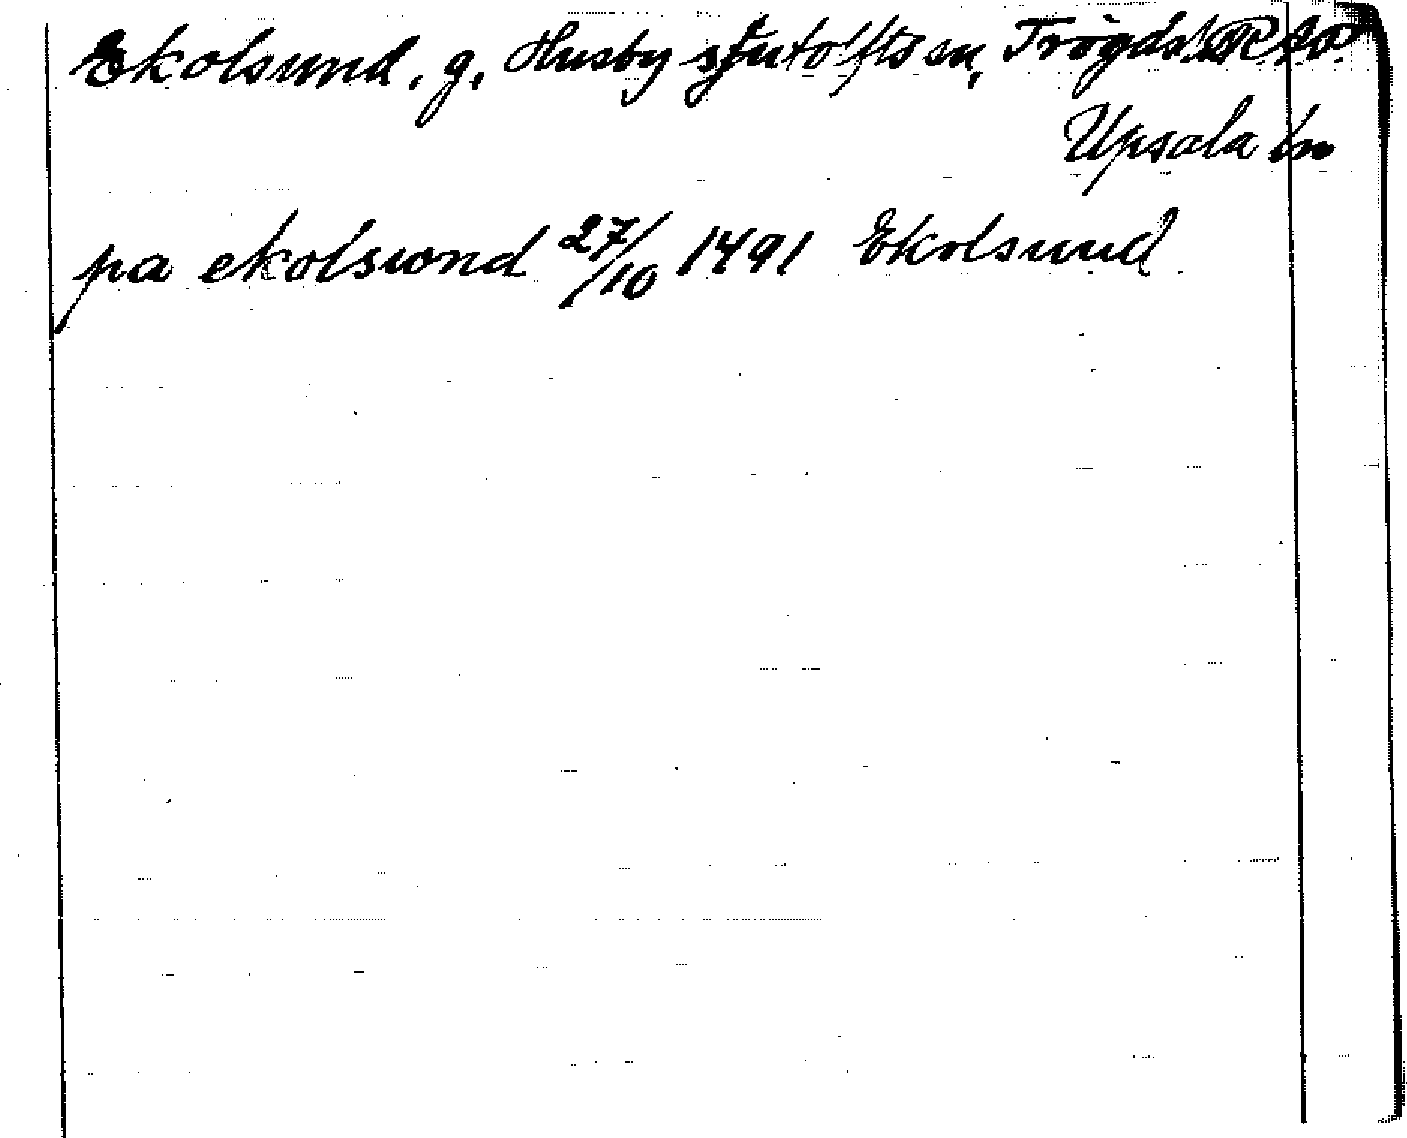 Ekolsund, g., Husby sjutolfts sn, Trögds
Upsala ln
pa ekolswnd 27/10 1491 Ekolsund